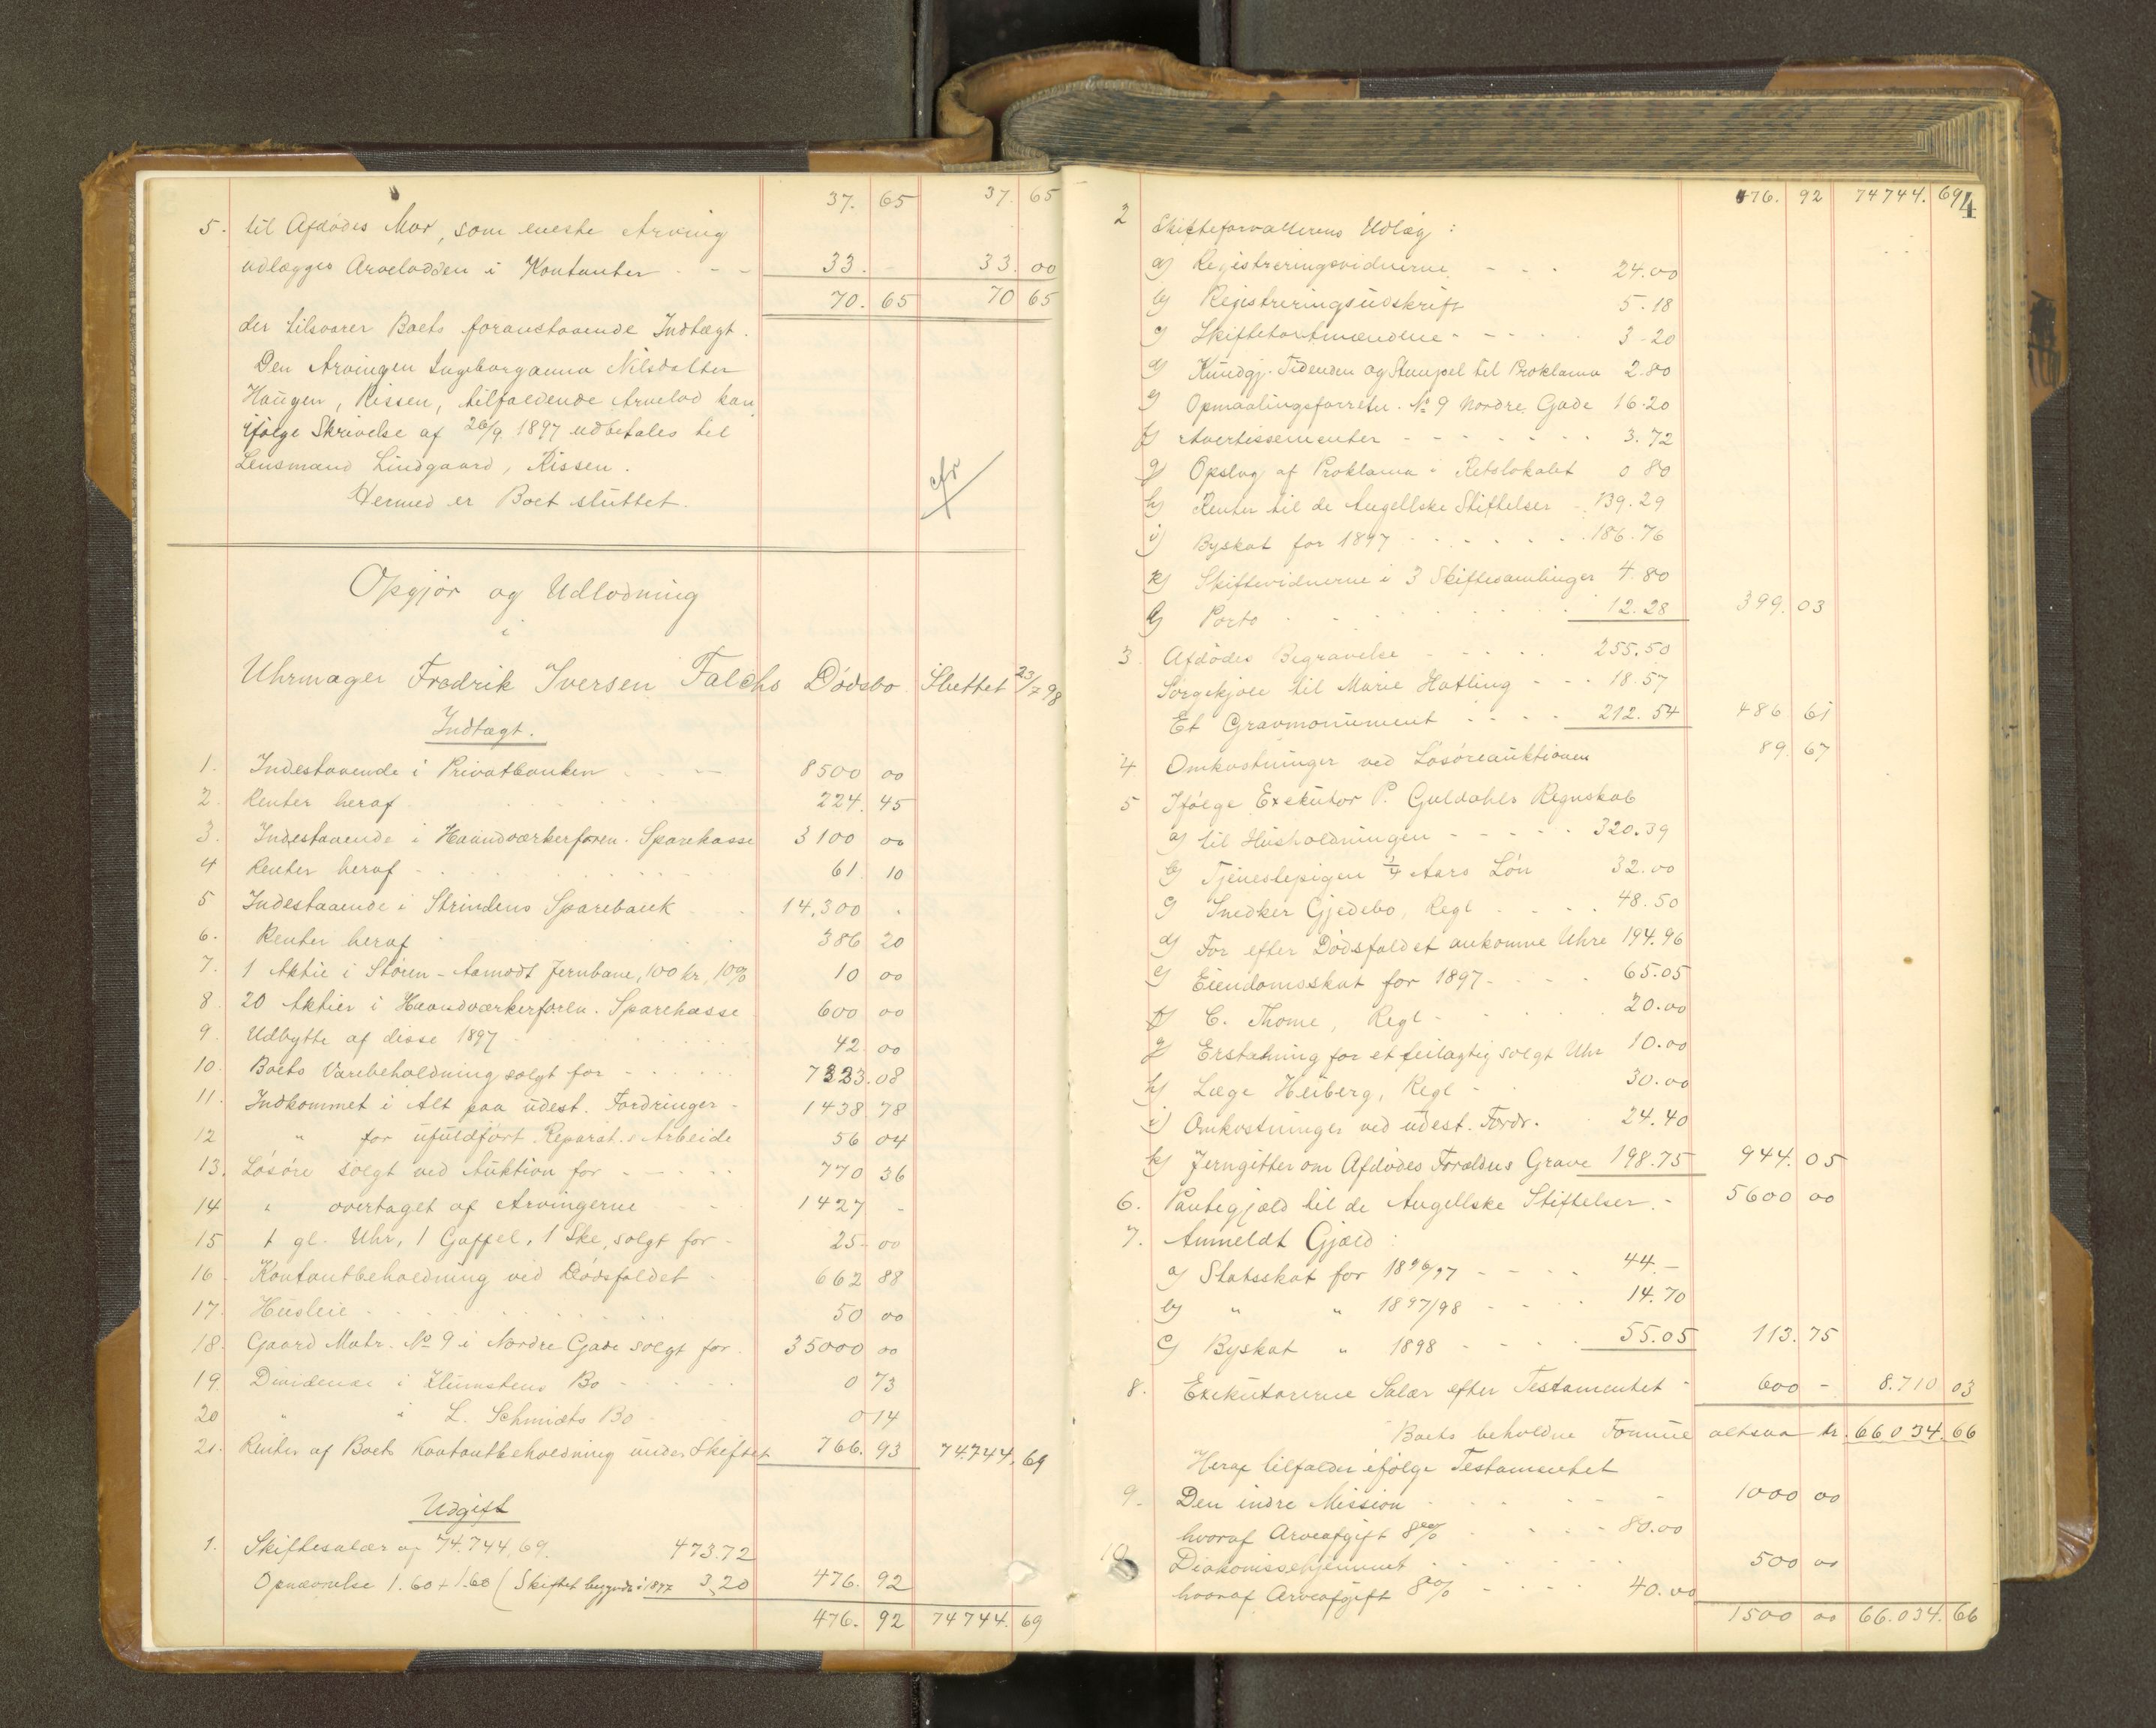 37. 65 37. 65
5. til Afdødes Mor, som eneste Arving
udlægges Arvelodden i Kontanter - - - 33. - 33. 00
70. 65 70 65
der tilsvarer Boets foranstaaende Indtægt.
Den Arvingen Ingeborganna Nilsdatter
Haugen, Rissen, tilfaldende Arvelod kan
ifølge Skrivelse af 26/9 1897 udbetales til
Lensmand Lindgaard, Rissen.
Hermed er Boet sluttet.
cfr
Opgjør og Udlodning
i
Uhrmager Fredrik Iversen Falchs Dødsbo. Sluttet 23/7 98
Indtægt.
1. Indestaaende i Privatbanken - - - 8500 00
2. Renter heraf 224. 45
3. Indestaaende i Haandværkerforen. Sparekasse 3100 00
4 Renter heraf - 61. 10
5 Indestaaende i Strindens Sparebank 14,300 -
6. Renter heraf 386 20
7. 1 Aktie i Støren-Aamodt Jernbane, 100 kr, 10% 10 00
8. 20 Aktier i Haandværkerforen. Sparekasse 600 00
9. Udbytte af disse 1897 42. 00
10. Boets Varebeholdning solgt for - - - 7323.08
11. Indkommet i Alt paa udest. Fordringer - 1438 78
12 " for ufuldført Reparat.s Arbeide 56 04
13. Løsøre solgt ved Auktion for - - - 770 36
14 " overtaget af Arvingerne 1427 -
15 1 gl. Uhr, 1 Gaffel, 1 Ske, solgt for - 25- 00
16 Kontantbeholdning ved Dødsfaldet 662 88
17. Husleie - 50 00
18. Gaard Matr. No 9 i Nordre Gade solgt for. 35000 00
19. Dividende i Bo - - - 0 73
20 " i L. Schmidts Bo 0 14
21. Renter af Boets Kontantbeholdning under Skiftet 766. 93 74.744, 69
Udgift
1. Skiftesalær af 74.744,69. 473.72
Opnævnelse 1.60 + 1.60 (Skiftet begyndt i 1897 3,20 476. 92
476. 92 74744. 69
476. 92 74744. 69 4
2 Skifteforvalterens Udlæg:
a) Registreringsvidnerne - - - 24.00
b) Registreringsudskrift 5.18
c) Skiftetaxtmændene - - - 3-20
d) Kundgj. Tidenden og Stempel til Proklama 2.80
e) Opmaalingsforretn. No 9 Nordre Gade 16.20
f) Avertissementer - - - 3.72
g) Opslag af Proklama i Retslokalet 0 80
h) Renter til de Angellske Stiftelser - 139.29
i) Byskat for 1897 - - - 186.76
k) Skiftevidnerne i 3 Skiftesamlinger 4.80
l) Porto - - - 12.28 399. 03
3. Afdødes Begravelse - - - 255.50
Sørgekjole til Marie Hatling - - - 18.57
Et Gravmonument - - - 212.54 486 61
4 Omkostninger ved Løsøreauktionen 89. 67
5 Ifølge Exekutor P. Guldahls Regnskab
a) til Husholdningen - - - 320.39
b) Tjenestepigen 1/4 Aars Løn 32.00
c) Snedker Gjedebo, Regl - - - 48.50
d) For efter Dødsfaldet ankomne Uhre 194.96
e) Eiendomsskat for 1897 - - - 65.05
f) C. Thome, Regl - - - 20.00
g) Erstatning for et feilagtig solgt Uhr 10.00
h) Læge Heiberg, Regl - - 30.00
i) Omkostninger ved udest. Fordr. 24.40
k) Jerngitter om Afdødes Forældres Grave 198.75 944. 05
6. Pantegjæld til de Angellske Stiftelser - 5600 00
7. Anmeldt Gjæld:
a) Statsskat for 1896/97 - - - 44.-
b) " " 1897/98 - - - 14.70
c) Byskat " 1898 - - - 55.05 113. 75
8. Exekutorerne Salær efter Testamentet - 600 - 8.710 03
Boets beholdne Formue altsaa kr. 66 034. 66
Heraf tilfalder ifølge Testamentet
9. Den indre Mission - - - 1000 00
hvoraf Arveafgift 8% - - - 80.00
10 Diakonissehjemmet - - - 500 00
hvoraf Arveafgift 8% - - - 40.00
1500 00 66.034. 66